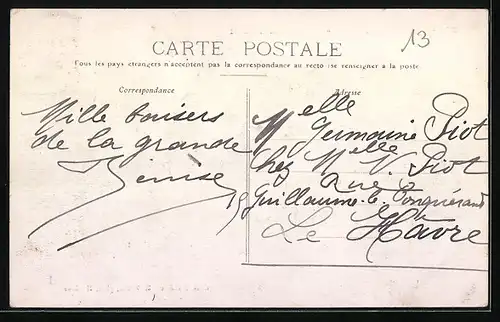 CARTE POSTALE
13
Tous les pays étrangers n'acceptent pas la correspondance au recto (se renseigner à la poste
Correspondance
Mille baisers
de la grande
Denise
Adresse
Melle
Germaine Piot
chez Melle V. Piot
Rue
19 Guillaume-le-Conquérant
Le Hâvre